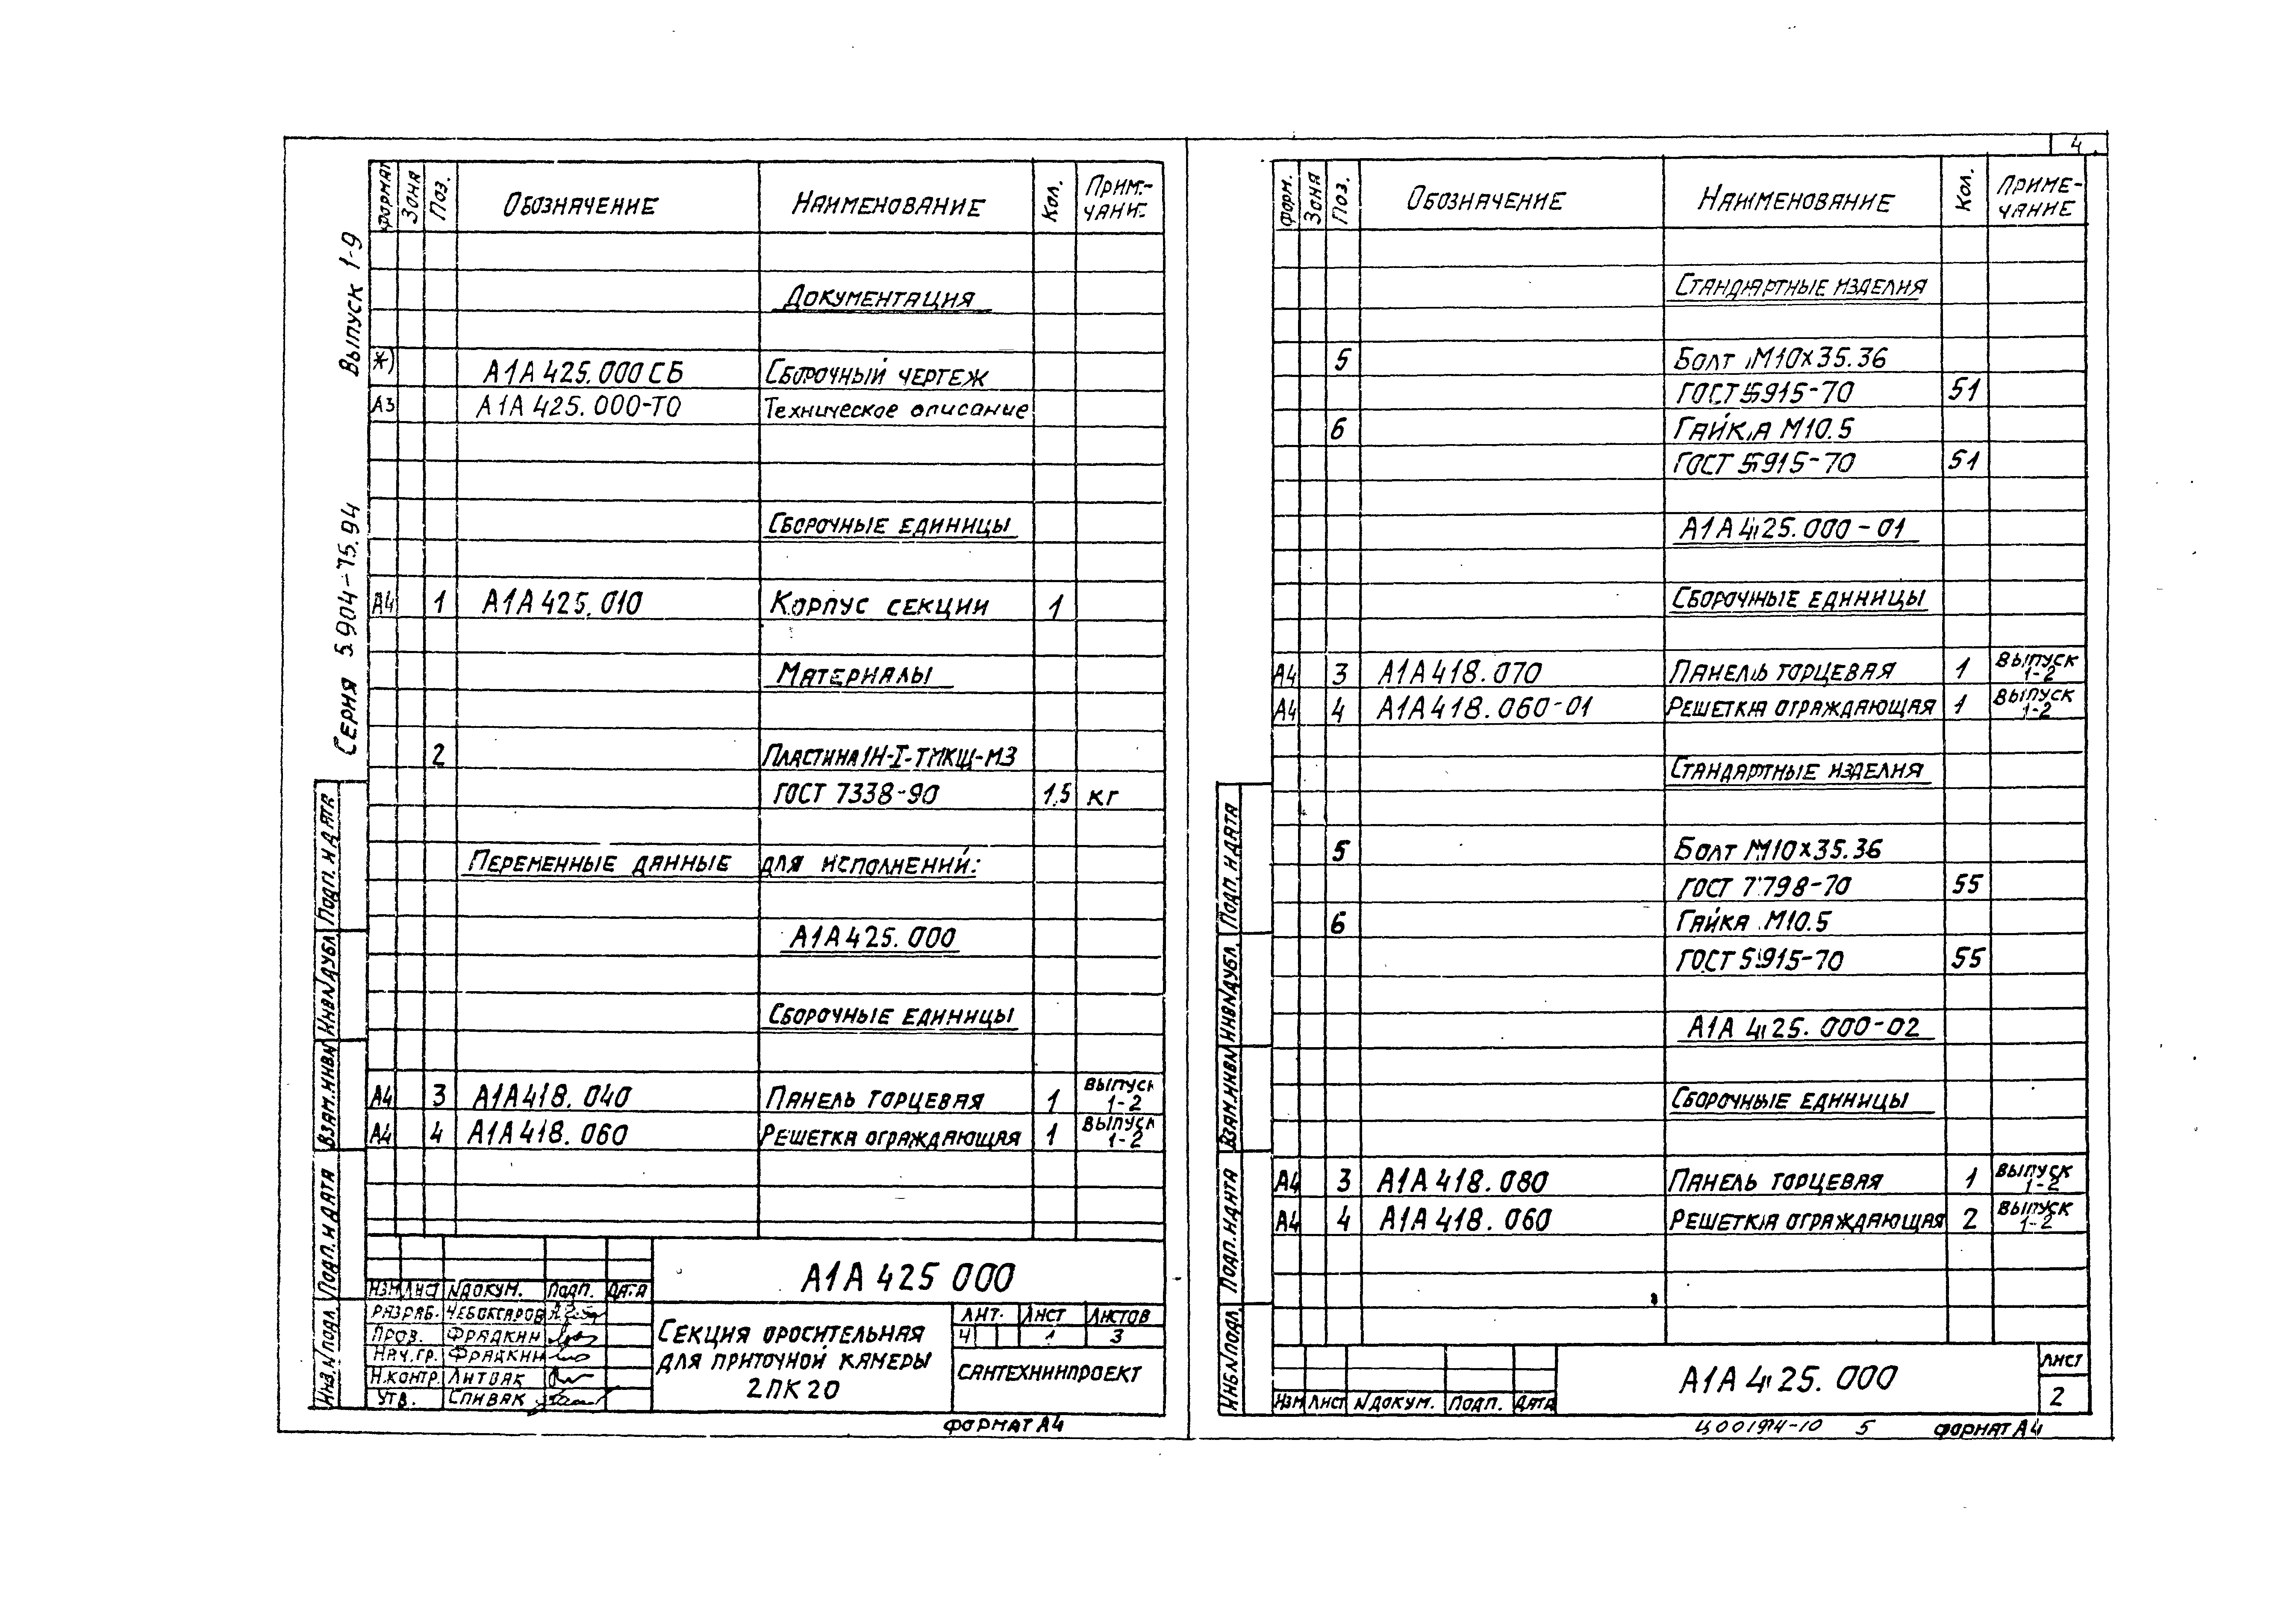 4
Выпуск 1-9
Серия 5.904-75.94
Формат Зона Поз. Обозначение Наименование Кол. Приме-
чание
Документация
*) А1А 425.000 СБ Сборочный чертеж
А3 А1А 425.000-ТО Техническое описание
Сборочные единицы
А4 1 А1А 425.010 Корпус секции 1
Материалы
2 Пластина 1Н-I-ТМКЩ-М3
ГОСТ 7338-90 1,5 кг
Переменные данные для исполнений:
А1А 425.000
Сборочные единицы
А4 3 А1А 418.040 Панель торцевая 1 Выпуск 1-2
А4 4 А1А 418.060 Решетка ограждающая 1 Выпуск 1-2
Подп. и дата
Инв№дубл.
Взам.инв№
Подп. и дата
Инв.№подл.
А1А 425 000
Изм Лист №докум. Подп. Дата
Разраб. Чебоксаров
Пров. Фрадкин
Нач.гр. Фрадкин
Н.контр. Литвак
Утв. Спивак
Секция оросительная
для приточной камеры
2ПК20
Лит. Лист Листов
Ч 1 3
Сантехниипроект
Формат А4
Форм. Зона Поз. Обозначение Наименование Кол. Приме-
чание
Стандартные изделия
5 Болт М10х35.36
ГОСТ 5915-70 51
6 Гайка М10.5
ГОСТ 5915-70 51
А1А 425.000-01
Сборочные единицы
А4 3 А1А 418.070 Панель торцевая 1 Выпуск 1-2
А4 4 А1А 418.060-01 Решетка ограждающая 1 Выпуск 1-2
Стандартные изделия
5 Болт М10х35.36
ГОСТ 7798-70 55
6 Гайка М10.5
ГОСТ 5915-70 55
А1А 425.000-02
Сборочные единицы
А4 3 А1А 418.080 Панель торцевая 1 Выпуск 1-2
А4 4 А1А 418.060 Решетка ограждающая 2 Выпуск 1-2
Подп. и дата
Инв№дубл.
Взам.инв№
Подп. и дата
Инв№подл.
Изм Лист №докум. Подп. Дата
А1А 425.000
Лист
2
Ц001974-10 5 Формат А4